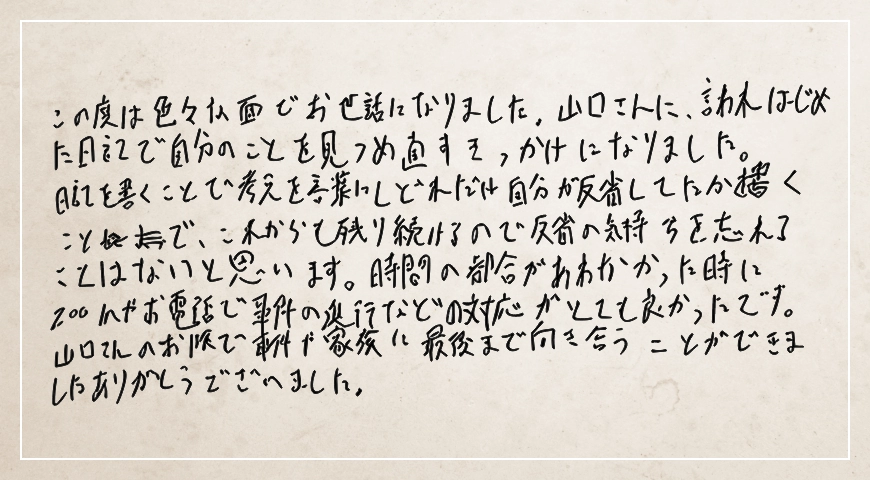 この度は色々な面でお世話になりました。山口さんに、言われはじめ
た日記で自分のことを見つめ直すきっかけになりました。
日記を書くことで考えを言葉にしどれだけ自分が反省してたか書く
ことで、これからも残り続けるので反省の気持ちを忘れる
ことはないと思います。時間の都合があわなかった時に
zoomやお電話で事件の進行などの対応がとても良かったです。
山口さんのお陰で事件や家族に最後まで向き合うことができま
したありがとうございました。